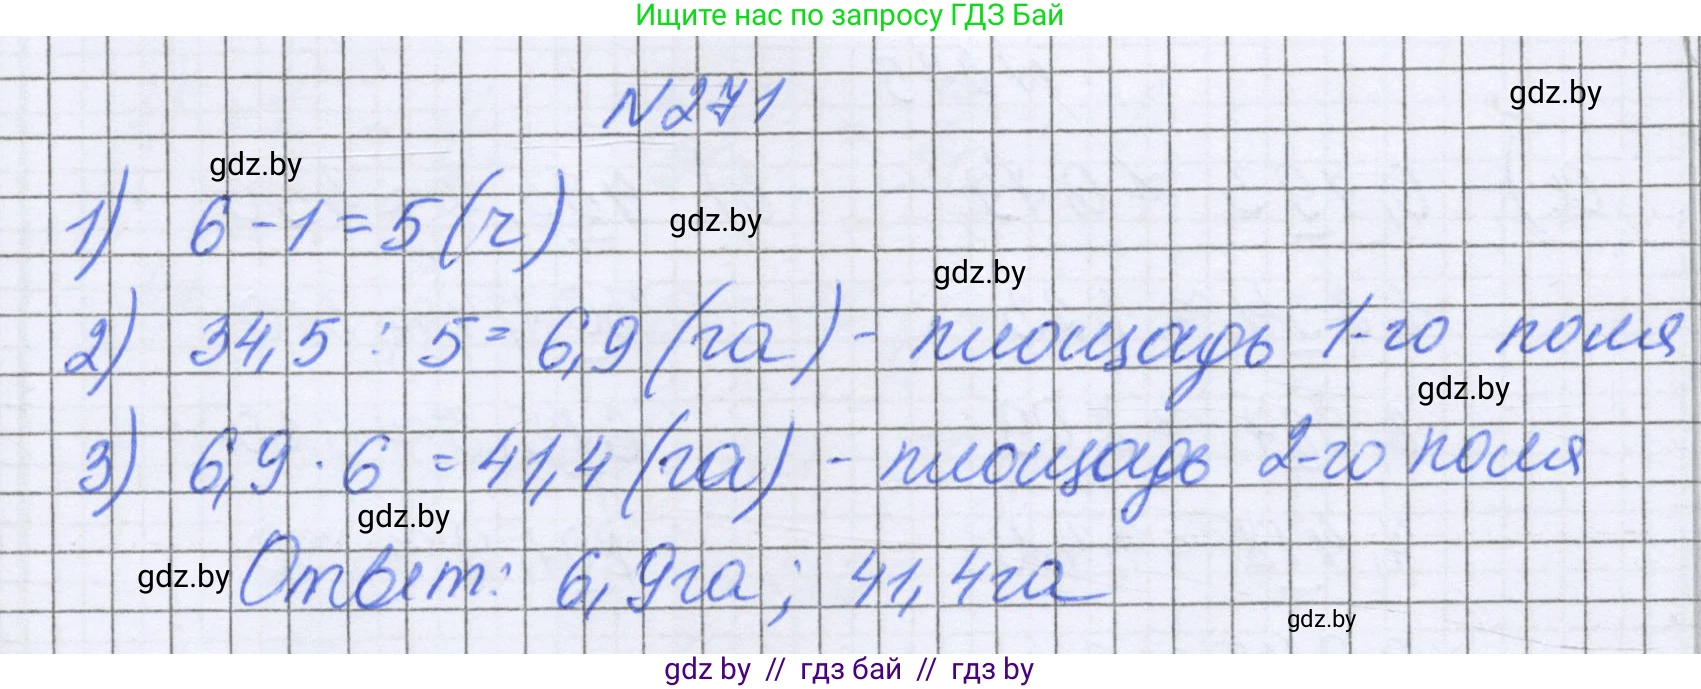 Ищите нас по запросу ГДЗ Бай
№271
gdz.by
gdz.by
1) 6-1=5(ч)
gdz.by
gdz.by
2) 34,5 : 5= 6,9 (га) - площадь 1-го поля
gdz.by
3) 6,9 · 6 = 41,4 (га) - площадь 2-го поля
gdz.by
gdz.by
Ответ: 6,9га; 41,4га
gdz.by
gdz by // гдз бай // гдз by